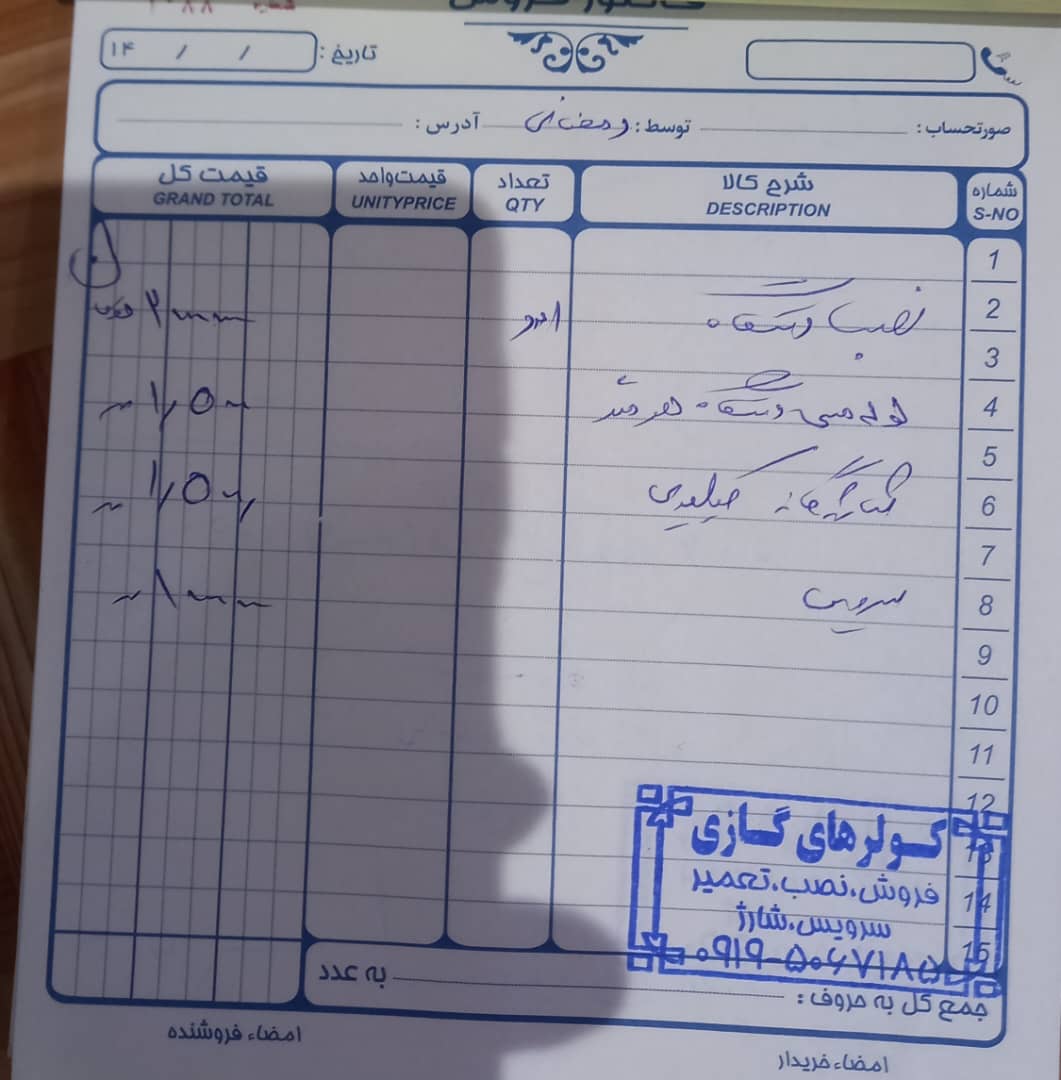 فاکتور فروش
تاریخ: / / ۱۴
صورتحساب: توسط: رمضانی آدرس:
شماره S-NO شرح کالا DESCRIPTION تعداد QTY قیمت واحد UNITYPRICE قیمت کل GRAND TOTAL
1
2 نصب دستگاه
3
4 لوله مسی دستگاه هر متر ۱/۵۰
5
6 کیلویی ۱/۵۰
7
8 سرویس
9
10
11
12
13
14
15
کولرهای گازی
فروش،نصب،تعمیر
سرویس،شارژ
۰۹۱۹-۵۰۶۷۱۸۵
جمع کل به حروف: به عدد
امضاء خریدار امضاء فروشنده